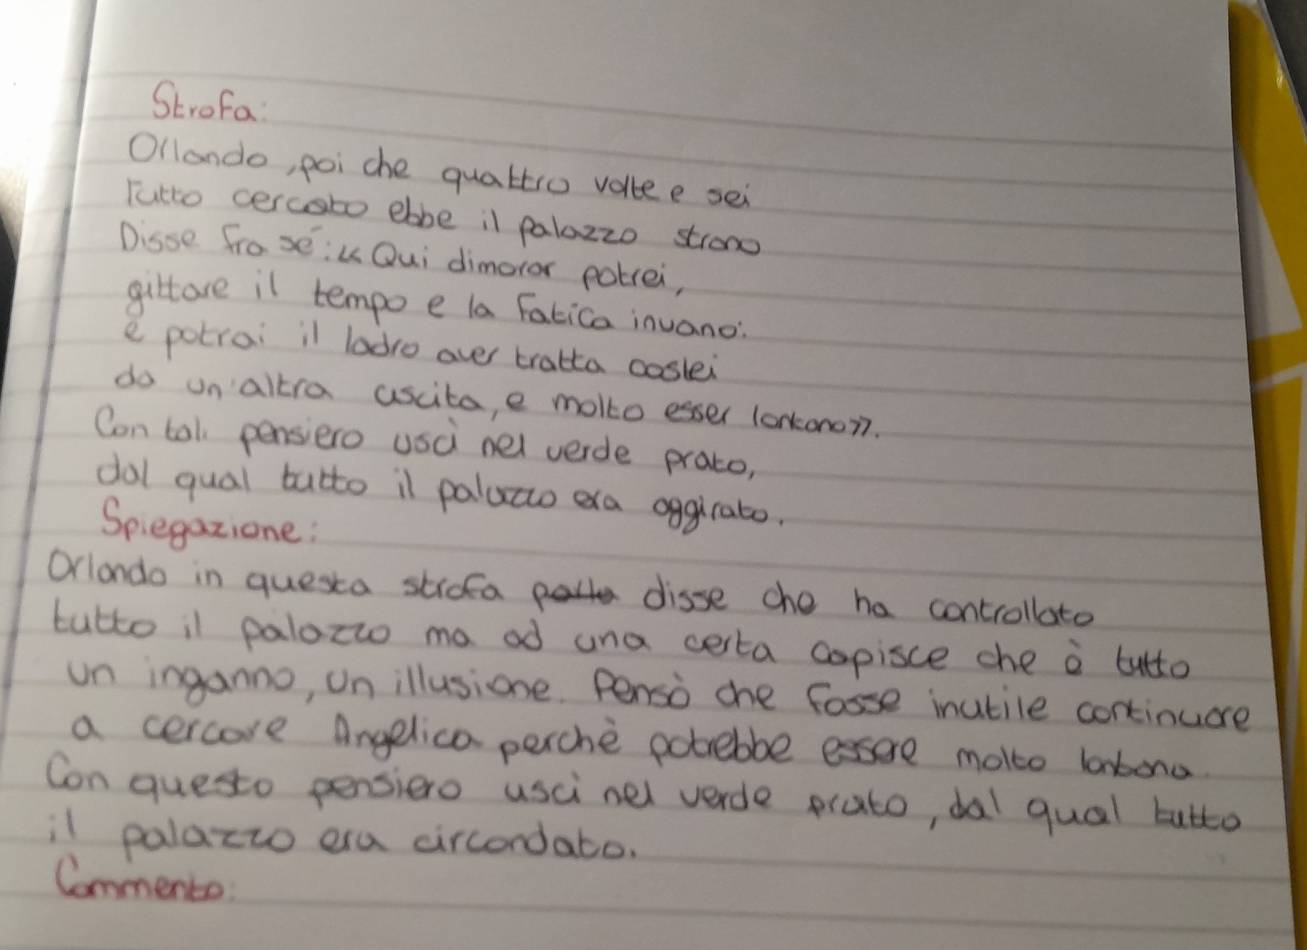 Strofa:
Orlando, poi che quattro volte e sei
Tutto cercato ebbe il palazzo strano
Disse fra sé: « Qui dimorar potrei,
gittare il tempo e la fatica invano:
e potrai il ladro aver tratta costei
da un'altra uscita, e molto esser lontano».
Con tal pensiero uscì nel verde prato,
dal qual tutto il palazzo era aggirato.
Spiegazione:
Orlando in questa strofa disse che ha controllato
tutto il palazzo ma ad una certa capisce che è tutto
un inganno, un illusione. Pensò che fosse inutile continuare
a cercare Angelica perchè potrebbe essere molto lontana.
Con questo pensiero usci nel verde prato, dal qual tutto
il palazzo era circondato.
Commento: